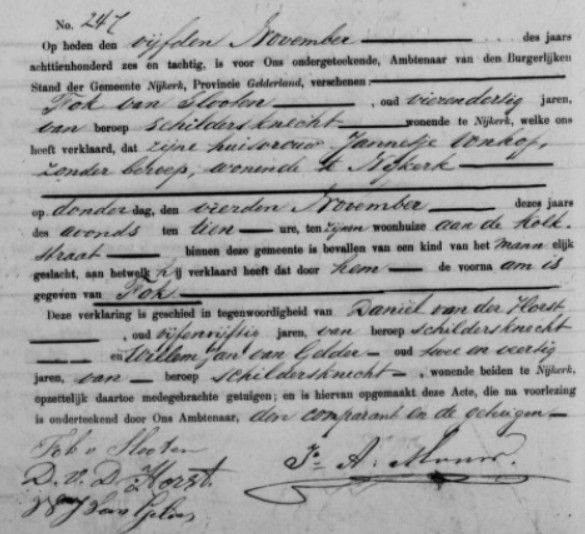 No. 247
Op heden den vijfden November des jaars
achttienhonderd zes en tachtig, is voor Ons ondergeteekende, Ambtenaar van den Burgerlijken
Stand der Gemeente Nijkerk, Provincie Gelderland, verschenen:
Fok van Slooten , oud vierendertig jaren,
van beroep schildersknecht wonende te Nijkerk, welke ons
heeft verklaard, dat zijne huisvrouw Jannetje Vonhof,
zonder beroep, wonende te Nijkerk
op donderdag, den vierden November dezes jaars
des avonds ten tien ure, ten zijnen woonhuize aan de Kolk-
straat binnen deze gemeente is bevallen van een kind van het mannelijk
geslacht, aan hetwelk hij verklaard heeft dat door hem de voornaam is
gegeven van Fok
Deze verklaring is geschied in tegenwoordigheid van Daniël van der Horst
, oud vijfenvijftig jaren, van beroep schildersknecht
en Willem Jan van Gelder oud twee en veertig
jaren, van beroep schildersknecht , wonende beiden te Nijkerk,
opzettelijk daartoe medegebrachte getuigen; en is hiervan opgemaakt deze Acte, die na voorlezing
is onderteekend door Ons Ambtenaar, den comparant en de getuigen
Fok v Slooten
D. v. D. Horst.
W J van Gelder